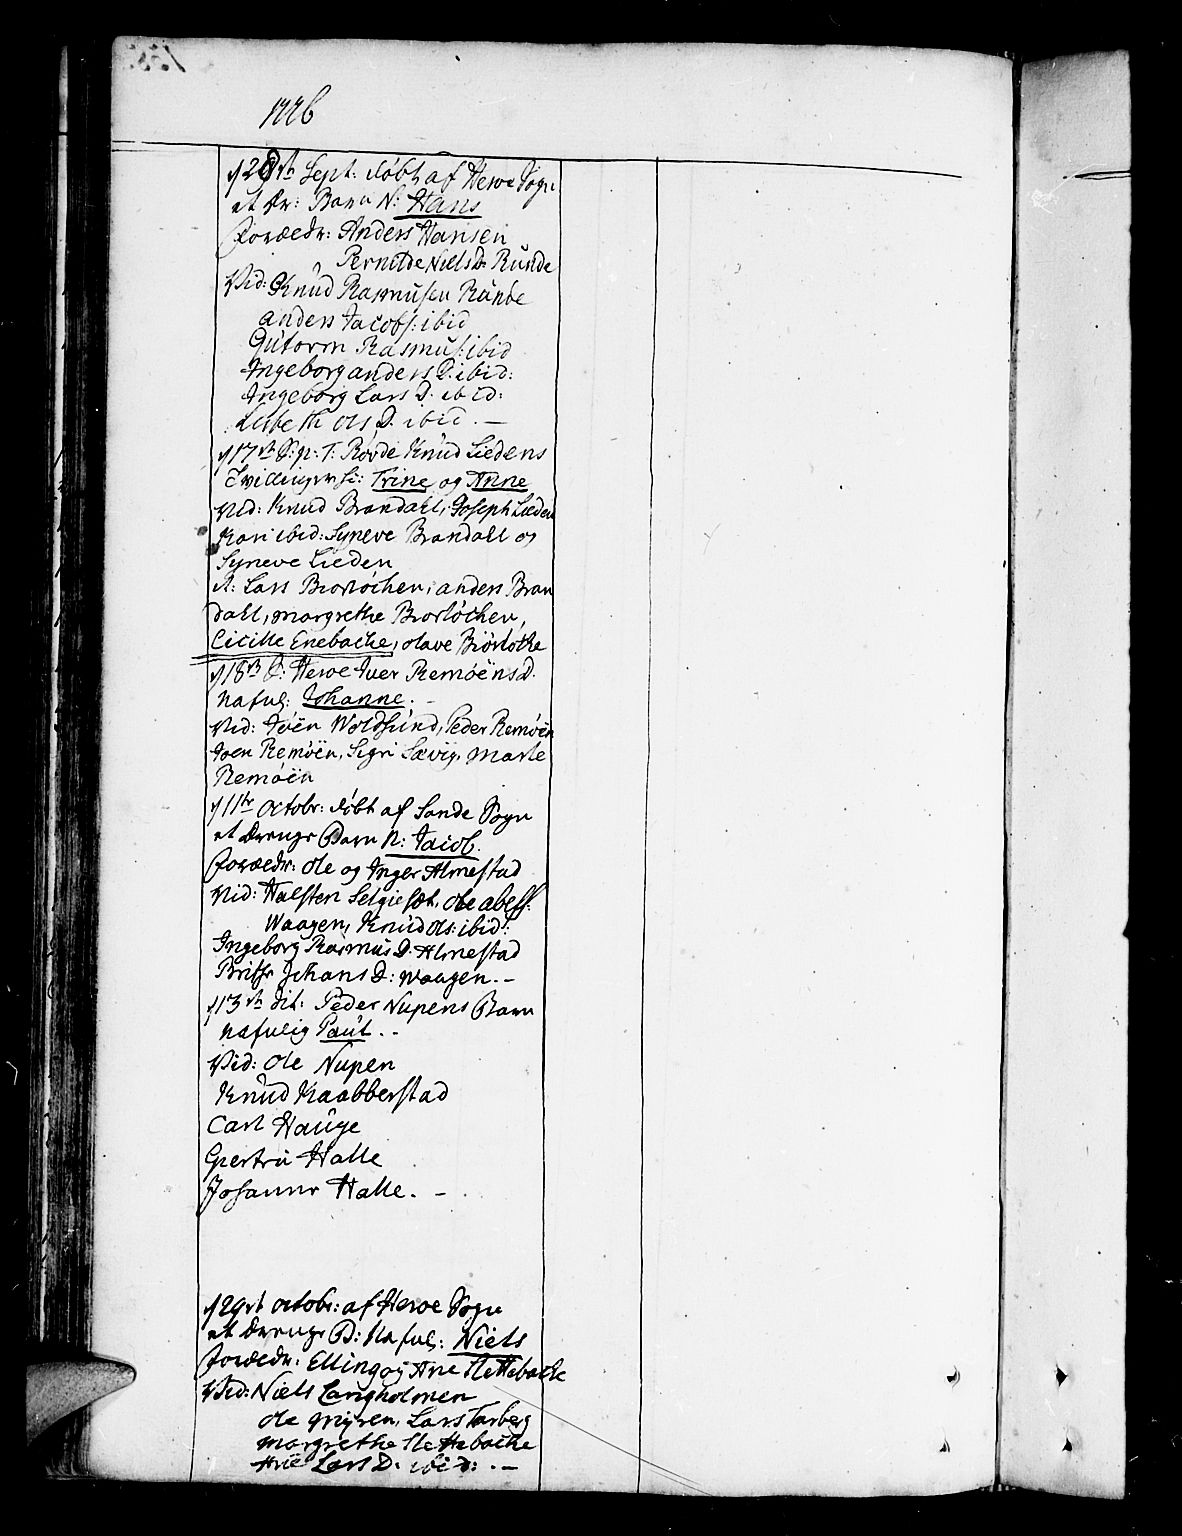 1776
d 28de Sept: døbt af Herøe Sogn
et dr: Barn N: Hans
Foræedr: Anders Hansen
Pernilde Niels D. Runde
Vid: Knud Rasmusen Runde
anders Jacobs: ibid
Gutorm Rasmus: ibid
Ingeborg anders D. ibid:
Ingeborg Lars D. ibid:
Lisbeth Ols D. ibid. —
Røvde Knud Liedens
Tvillinger Trine og Anne
Vid: Knud Brandahl, Joseph Lieden
Kari ibid: Syneve Brandall og
Syneve Lieden
Lars Biorløchen, anders Bran
dahl, margrethe Biorløchen,
Cicille Enebache, olave Biorløche
Herøe Iver Remøens D.
Nafnl: Johanne. -
Vid: Joen Woldsund, Peder Remøen
Joen Remøen, Sigri Sævig, Marte
Remøen
d 11te Octobr: døbt af Sande Sogn
et drenge Barn N: Jacob.
foræedr: Ole og Inger Almestad
Vid: Halsten Selgiesæt, Ole
Waagen, Knud Ols: ibid:
Ingeborg Rasmus D. Almestad
Johans D: Waagen. -
d 13de dit: Peder Nupens Barn
nafnlig Paul. --
Vid: Ole Nupen
Knud Kaabberstad
Carl Hauge
Giertru Halle
Johanne Halle. -
d 29de octobr: af Herøe Sogn
et drenge B: Nafnl: Niels
foræedr: Elling og Ane Slettebacke
Vid: Niels Langholmen
Ole Myren, Lars Tarberg
margrethe Slettebacke
Lars D. ibid: . —